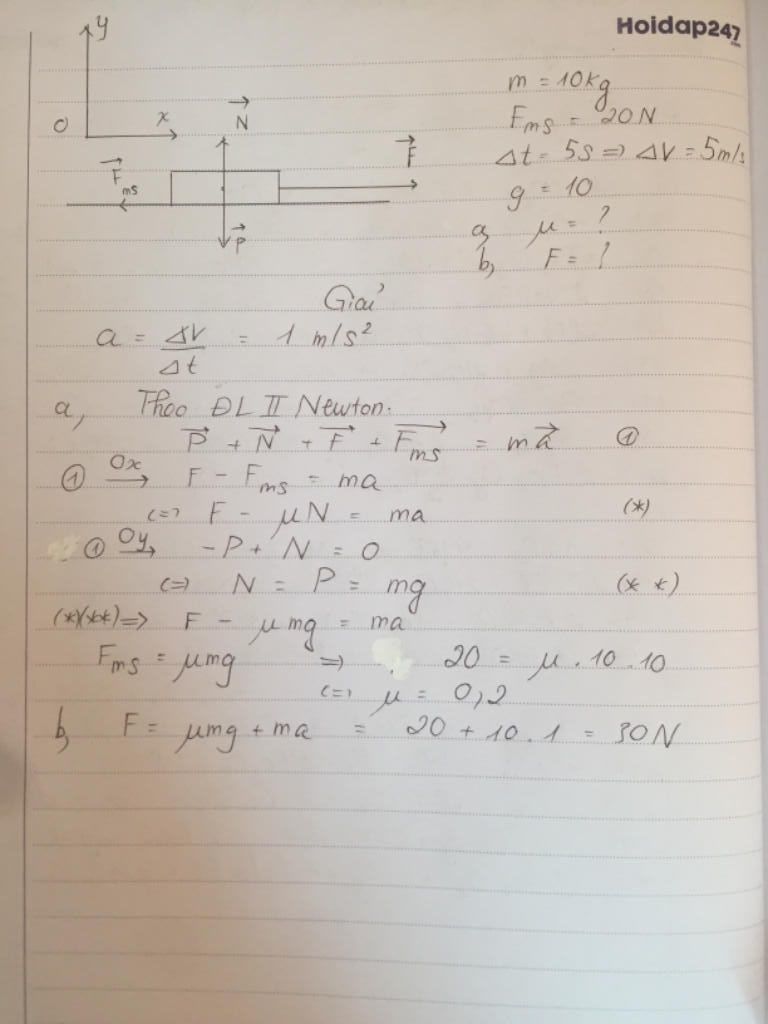 Hoidap247
.com
y
O
x
N
F
Fms
P
m = 10kg
Fms = 20N
Δt = 5s => ΔV = 5m/s
g = 10
a, μ = ?
b, F = ?
Giải
a = ΔV/Δt = 1 m/s²
a, Theo ĐL II Newton.
P + N + F + Fms = ma ①
① Ox→ F - Fms = ma
<=> F - μN = ma (*)
① Oy→ -P + N = 0
<=> N = P = mg (* *)
(*)(**)=> F - μmg = ma
Fms = μmg => 20 = μ . 10 . 10
<=> μ = 0,2
b, F = μmg + ma = 20 + 10 . 1 = 30N